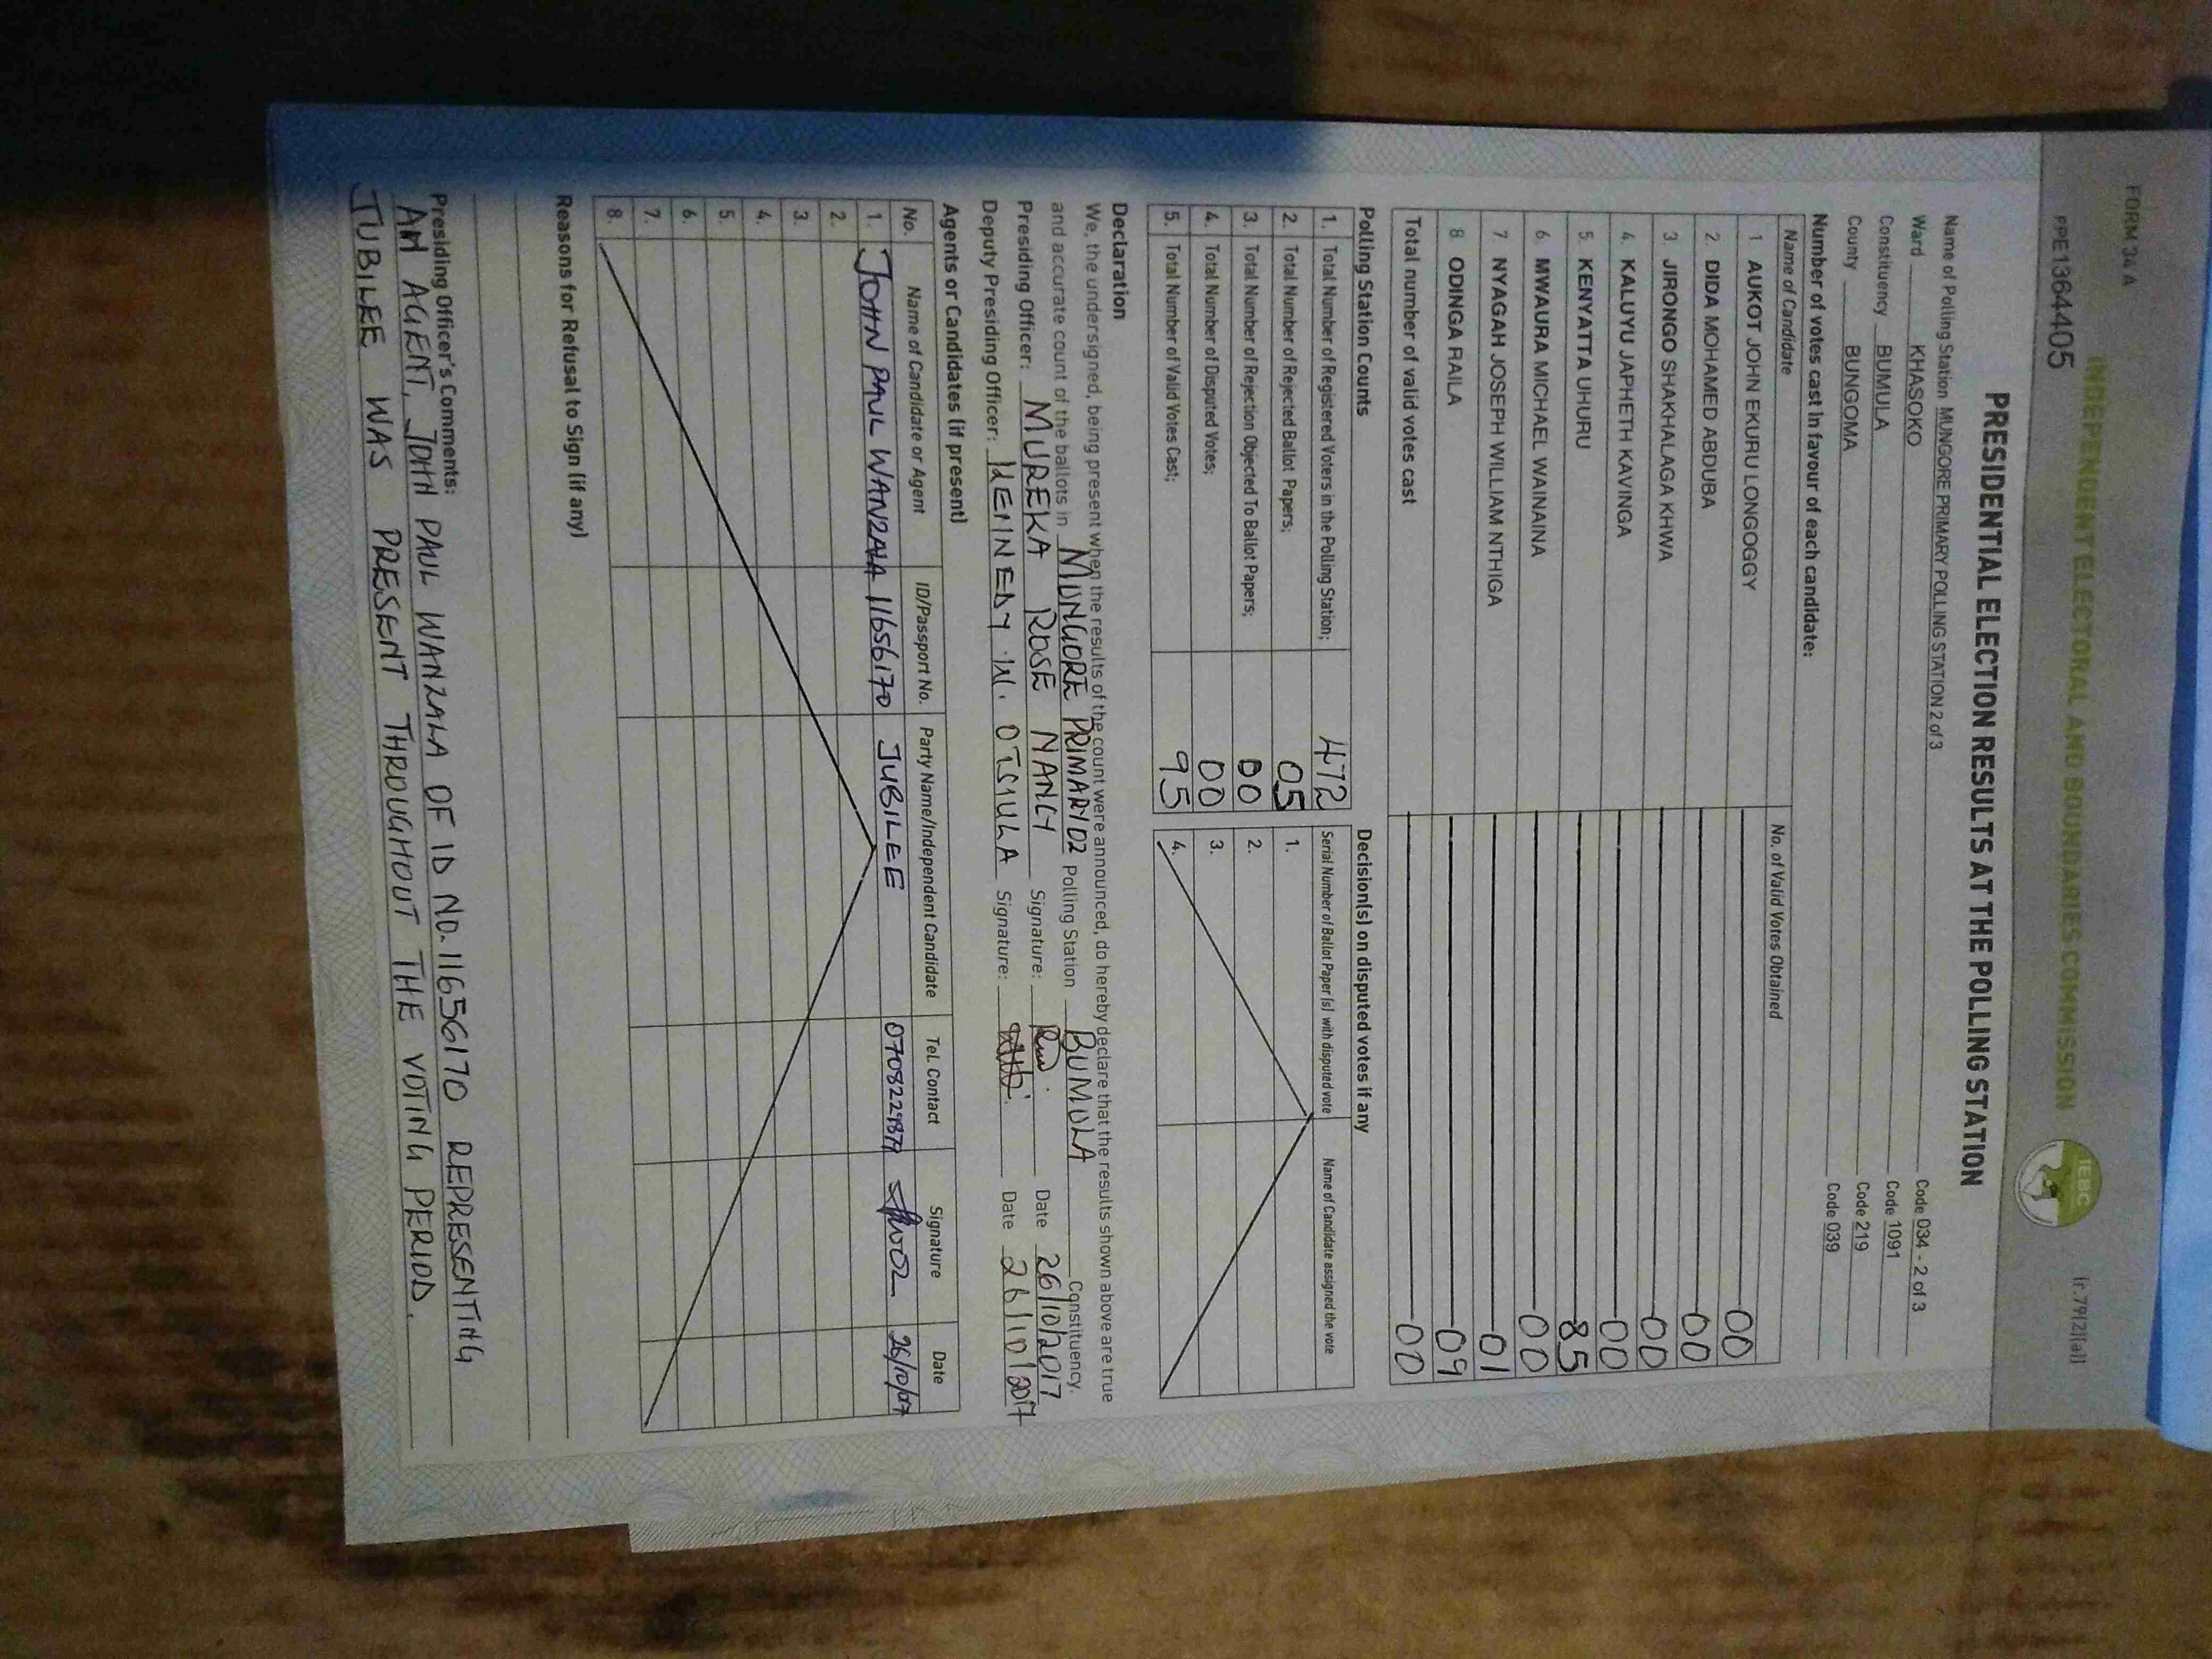 FORM 34 A
INDEPENDENT ELECTORAL AND BOUNDARIES COMMISSION
IEBC
(r.79(2)(a))
PPE1364405
PRESIDENTIAL ELECTION RESULTS AT THE POLLING STATION
Name of Polling Station MUNGORE PRIMARY POLLING STATION 2 of 3 Code 034 - 2 of 3
Ward KHASOKO Code 1091
Constituency BUMULA Code 219
County BUNGOMA Code 039
Number of votes cast in favour of each candidate:
Name of Candidate No. of Valid Votes Obtained
1 AUKOT JOHN EKURU LONGOGGY 00
2 DIDA MOHAMED ABDUBA 00
3. JIRONGO SHAKHALAGA KHWA 00
4. KALUYU JAPHETH KAVINGA 00
5. KENYATTA UHURU 85
6. MWAURA MICHAEL WAINAINA 00
7 NYAGAH JOSEPH WILLIAM NTHIGA 01
8 ODINGA RAILA 09
Total number of valid votes cast 00
Polling Station Counts
1. Total Number of Registered Voters in the Polling Station; 472
2. Total Number of Rejected Ballot Papers; 05
3. Total Number of Rejection Objected To Ballot Papers; 00
4. Total Number of Disputed Votes; 00
5. Total Number of Valid Votes Cast; 95
Decision(s) on disputed votes if any
Serial Number of Ballot Paper (s) with disputed vote Name of Candidate assigned the vote
1.
2.
3.
4.
Declaration
We, the undersigned, being present when the results of the count were announced, do hereby declare that the results shown above are true
and accurate count of the ballots in MUNGORE PRIMARY 02 Polling Station BUMULA Constituency.
Presiding Officer: MUREKA ROSE NANCY Signature: Date 26/10/2017
Deputy Presiding Officer: KENNEDY W. OTSIULA Signature: Date 26/10/2017
Agents or Candidates (if present)
No. Name of Candidate or Agent ID/Passport No. Party Name/Independent Candidate Tel. Contact Signature Date
1. JOHN PAUL WANZALA 11656170 JUBILEE 26/10/017
2.
3.
4.
5.
6.
7.
8.
Reasons for Refusal to Sign (if any)
Presiding Officer's Comments:
AN AGENT, JOHN PAUL WANZALA OF ID NO. 11656170 REPRESENTING
JUBILEE WAS PRESENT THROUGHOUT THE VOTING PERIOD.